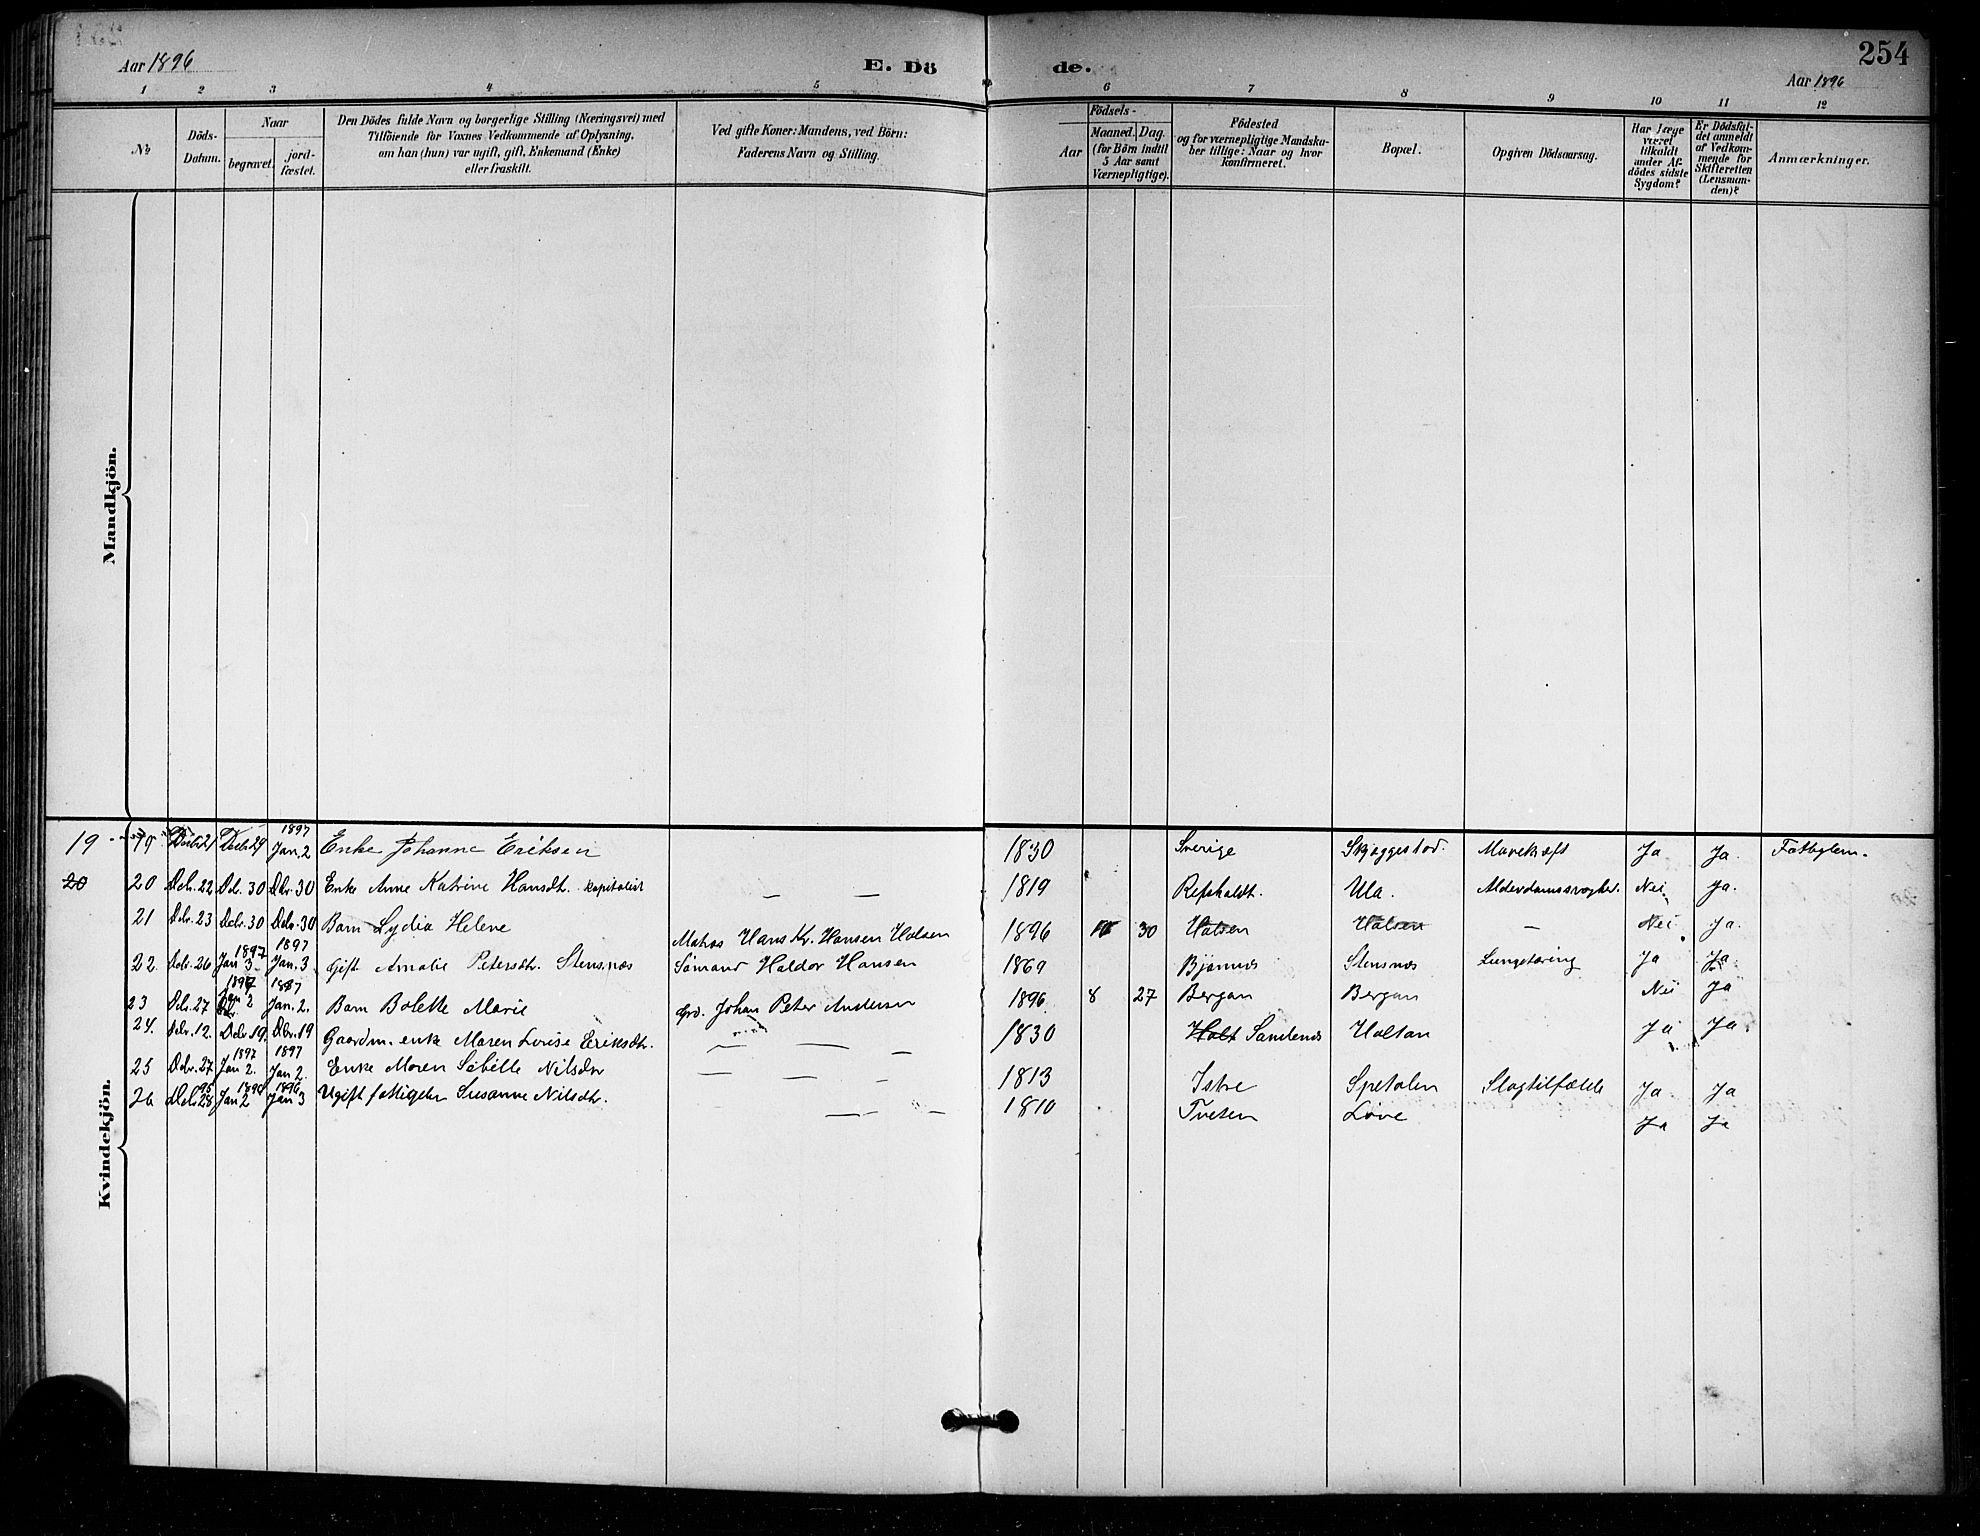 Aar 1896 E. Dö de. 254
Aar 1896
1 2 3 4 5 6 7 8 9 10 11 12
No
Döds-Datum.
Naar
begravet.
jordfæstet.
Den Dödes fulde Navn og borgerlige Stilling (Næringsvei) med
Tilföiende for Voxnes Vedkommende af Oplysning,
om han (hun) var ugift, gift, Enkemand (Enke)
eller fraskilt.
Ved gifte Koner: Mandens, ved Börn:
Faderens Navn og Stilling.
Födsels-
Aar
Maaned. Dag.
(for Börn indtil
5 Aar samt
Værnepligtige).
Födested
og for værnepligtige Mandska-
ber tillige: Naar og hvor
Konfirmeret.
Bopæl.
Opgiven Dödsaarsag.
Har Læge
været
tilkaldt
under Af-
dödes sidste
Sygdom?
Er Dödsfal-
det anmeldt
af Vedkom-
mende for
Skifteretten
(Lensman-
den)?
Anmærkninger.
Mandkjön.
Kvindekjön.
19 19 Decbr 21 Decbr 29 1897 Jan. 2 Enke Johanne Eriksen 1830 Sverige Skjæggestad. Mavekræft Ja Ja.
20 20 Dcbr. 22 Dcbr. 30 Dcbr. 30 Enke Anne Katrine Hansdtr. kapitalist — — 1819 Refsholdt. Ula. Alderdomssvaghed. Nei Ja.
21 Dcbr. 23 Dcbr. 30 Dcbr. 30 Barn Lydia Helene Matros Hans Kr. Hansen Holsen 1896 30 Holsen Holsen — Nei Ja.
22. Dcbr. 26 1897 Jan 3 1897 Jan. 3 Gift Amalie Petersdtr. Stensnæs Sømand Haldor Hansen 1869 Bjønnes Stensnæs Lungetæring Ja Ja
23 Dcbr. 27 1897 Jan 2 1897 Jan. 2. Barn Bolette Marie Johan Peter Andersen 1896 8 27 Bergan Bergan Nei Ja
24. Dcbr. 12. Dcbr. 19. Dcbr. 19 Gaardm. enke Maren Lovise Eriksdtr. — — — 1830 Holt Holtan Ja Ja.
25 Dcbr. 27 1897 Jan 2. 1897 Jan 2. Enke Maren Sibille Nilsdtr — — — 1813 Istre Spetalen Slagtilfælde Ja. Ja
26 Dcbr. 95 28 1896 Jan 2 1896 Jan 3 Ugift fattigdm Susanne Nilsdtr. — — — 1810 Tveten Løve Ja Ja